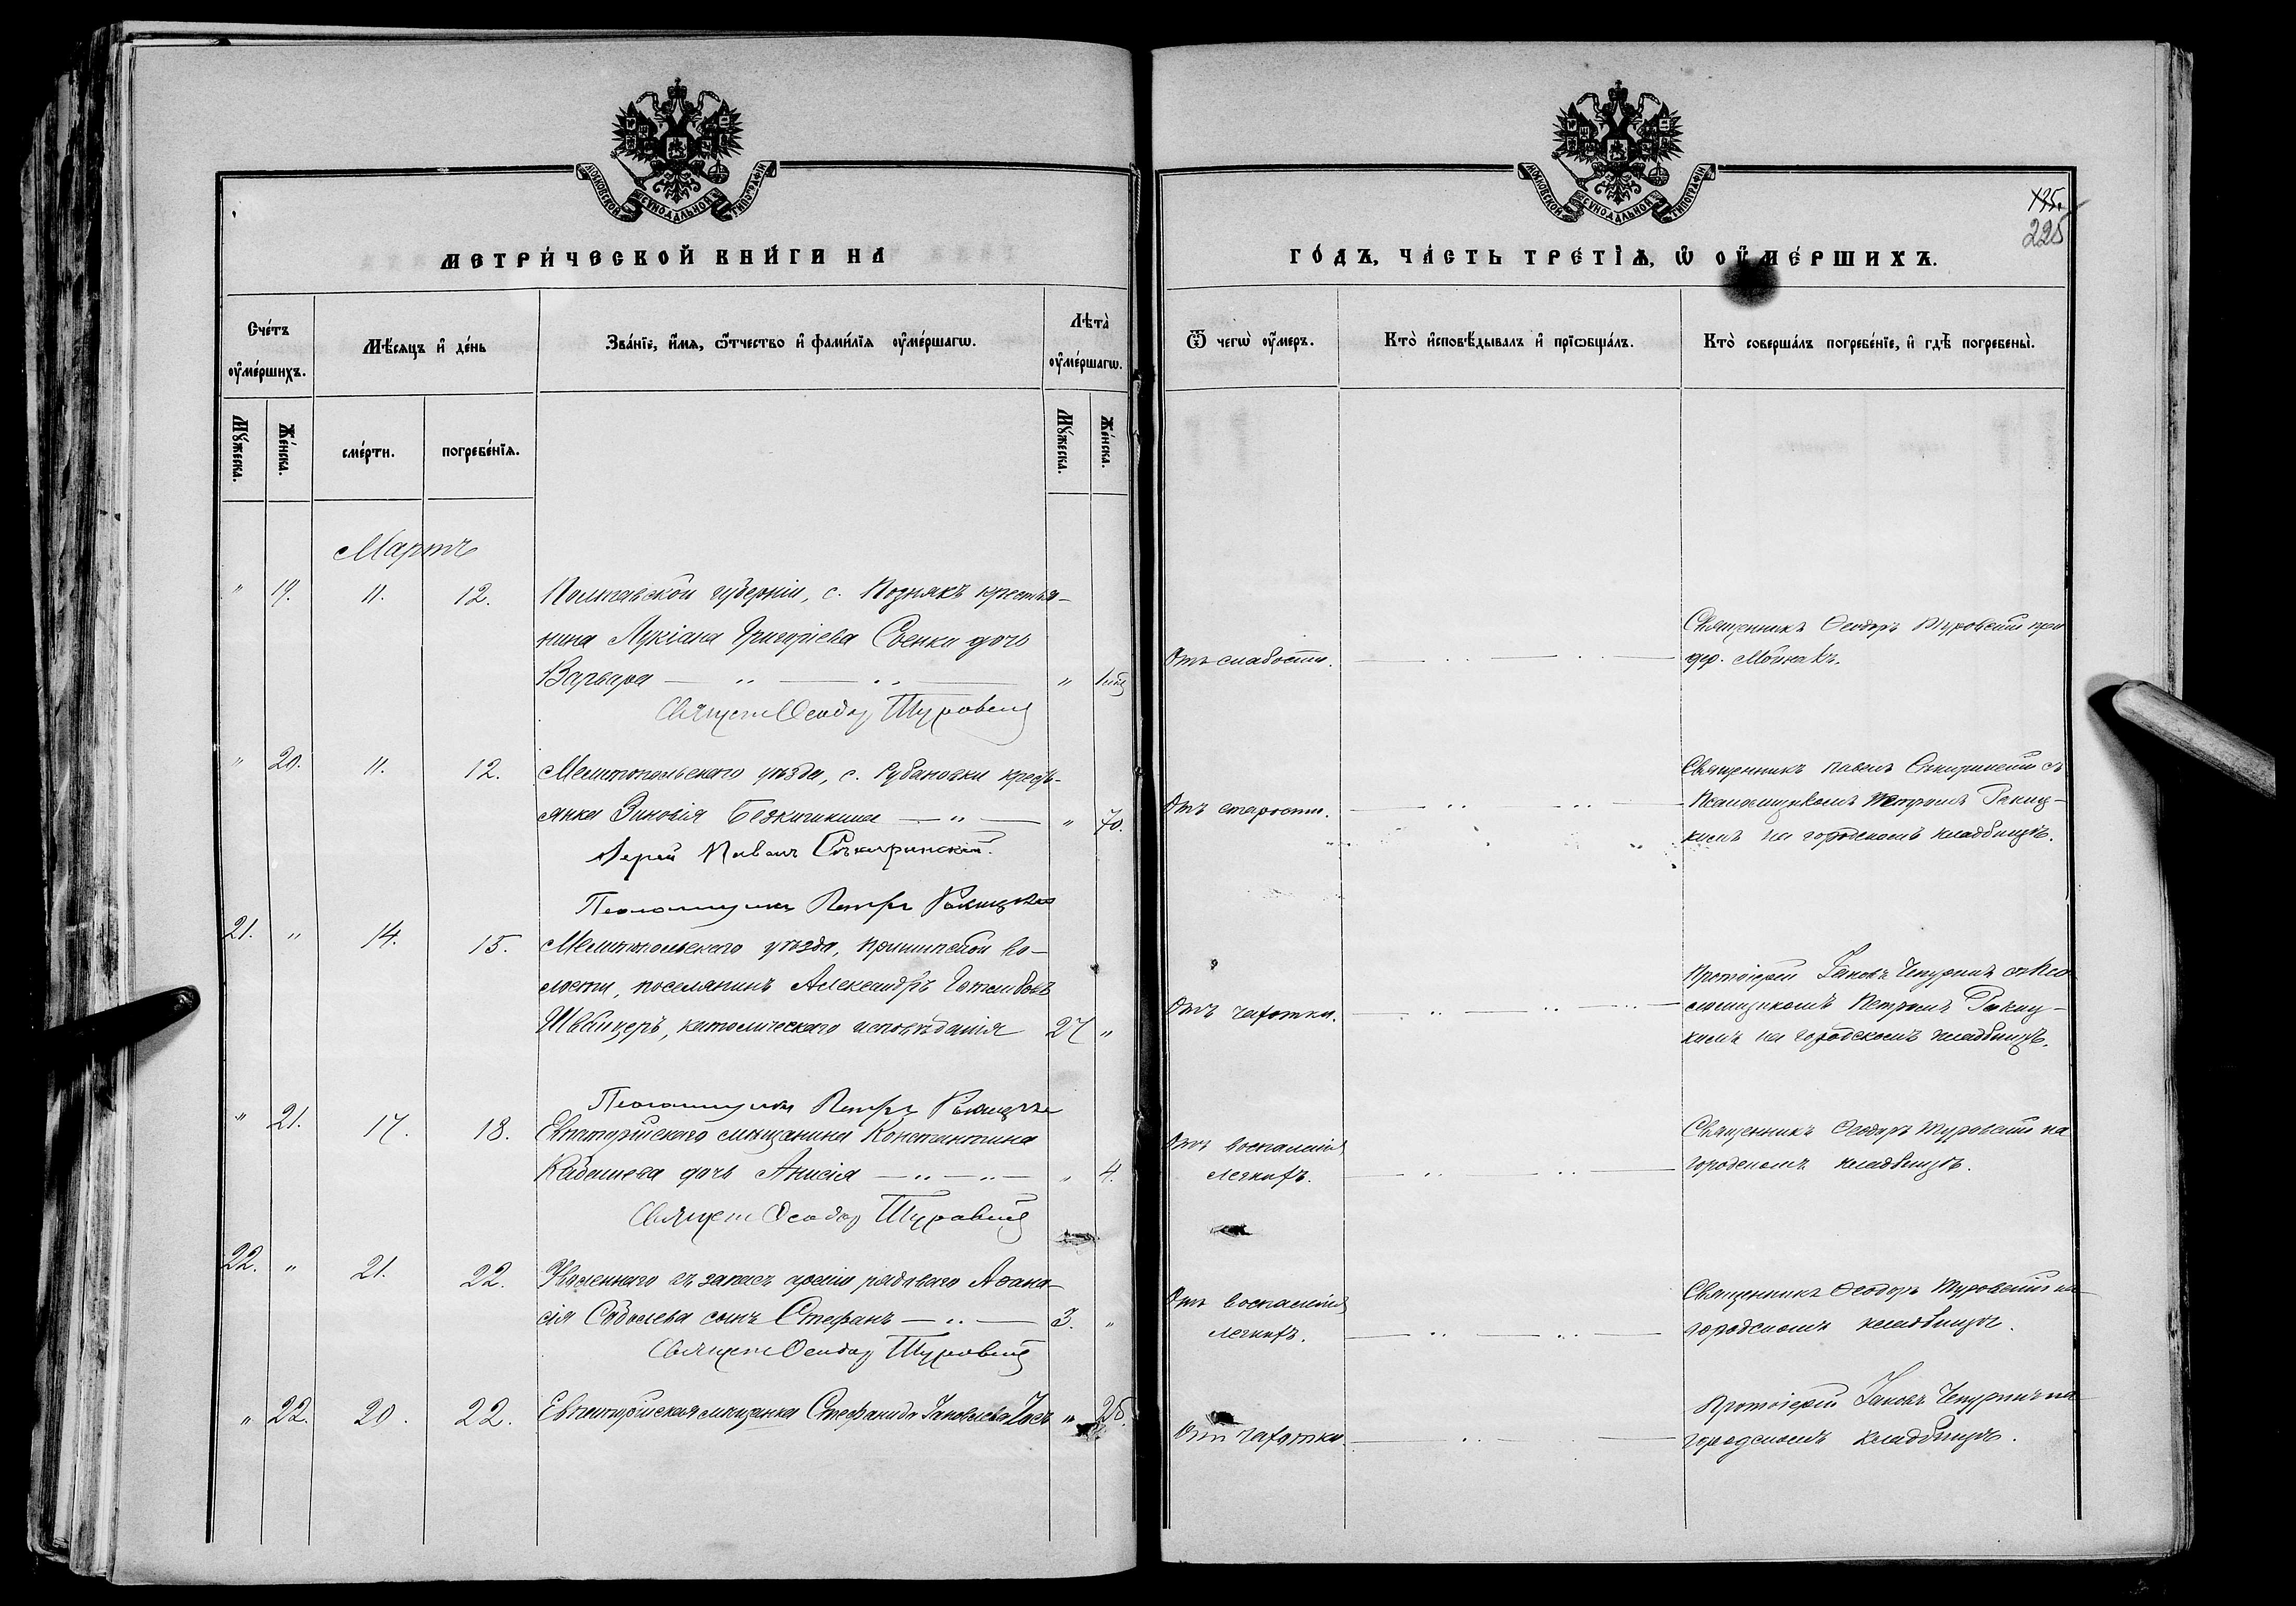 МОСКОВСКОЙ СУНОДАЛЬНОЙ ТИПОГРАФІИ
МЕТРИ́ЧЕСКОЙ КНИ́ГИ НА
Сче́тъ оу҆ме́ршихъ.
Мѣ́сяцъ и҆ де́нь
Зва́нїе, и҆́мя, ѻ҆́тчество и҆ фами́лїя оу҆ме́ршагѡ.
Лѣта̀ оу҆ме́ршагѡ.
Мꙋ́жеска.
Же́нска.
сме́рти.
погребе́нїѧ.
Мꙋ́жеска.
Же́нска.
Мартъ
" 19. 11. 12. Полтавской губерніи, с. Познякъ крестья-
нина Лукіана Григоріева Саенки дочь
Варвара — " — " — "
Священ Ѳеодор Туровскій
" 20. 11. 12. Мелитопольскаго уѣзда, с. Рубановки кресть-
янка Зиновія — " — " 70.
Іерей Павелъ Сѣкиринскій.
Псаломщикъ Петръ Ракицкій
21. " 14. 15. Мелитопольскаго уѣзда, во-
лости, поселянинъ Александръ Готлибовъ
Швейцеръ, католическаго исповѣданія 27 "
Псаломщикъ Петръ Ракицкій
" 21. 17. 18. Евпаторійскаго мѣщанина Константина
дочь Анисія — " — " — " 4.
Священ Ѳеодор Туровскій
22. " 21. 22. Уволеннаго въ запасъ арміи рядоваго Аѳана-
сія Соболева сынъ Стефанъ — " — 3. "
Священ Ѳеодор Туровскій
" 22. 20. 22. Евпаторійская мѣщанка Стефанида Іаковлева "
МОСКОВСКОЙ СУНОДАЛЬНОЙ ТИПОГРАФІИ
195.
225
ГО́ДЪ, ЧА́СТЬ ТРЕ́ТЇѦ, Ѡ҆ ОУ҆МЕ́РШИХЪ.
Ѿ чегѡ̀ оу҆́меръ.
Кто̀ и҆сповѣ́дывалъ и҆ прїѡбща́лъ.
Кто̀ соверша́лъ погребе́нїе, и҆ гдѣ̀ погребены̀.
Отъ слабости. — " — " —
Священникъ Ѳеодоръ Туровскій при
дер. Мойнакъ.
Отъ старости. — " — " —
Священникъ Павелъ Сѣкиринскій съ
Псаломщикомъ Петромъ Ракиц-
кимъ на городскомъ кладбищѣ.
Отъ чахотки. — " — " —
Протоіерей Іаковъ Чепуринъ съ Пса-
ломщикомъ Петромъ Ракиц-
кимъ на городскомъ кладбищѣ.
Отъ воспаленія
легкихъ. — " — " —
Священникъ Ѳеодоръ Туровскій на
городскомъ кладбищѣ.
Отъ воспаленія
легкихъ. — " — " —
Священникъ Ѳеодоръ Туровскій на
городскомъ кладбищѣ.
Отъ чахотки. — " — " —
Протоіерей Іаковъ Чепуринъ на
городскомъ кладбищѣ.